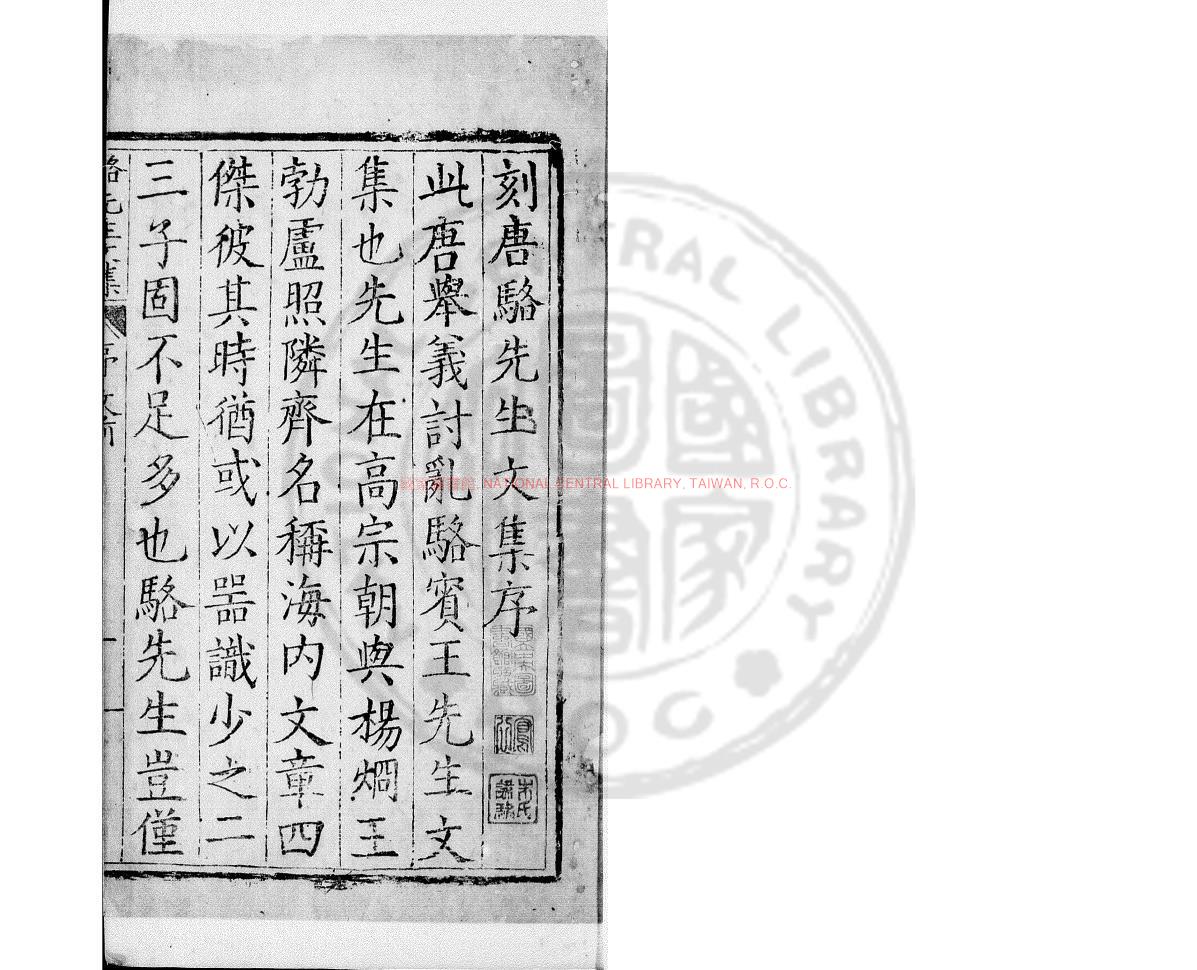 刻唐駱先生文集序
此唐舉義討亂駱賓王先生文
集也先生在高宗朝與楊烱王
勃盧照隣齊名稱海內文章四
傑彼其時猶或以噐識少之二
三子固不足多也駱先生豈僅
國家圖書館, NATIONAL CENTRAL LIBRARY, TAIWAN, R.O.C.